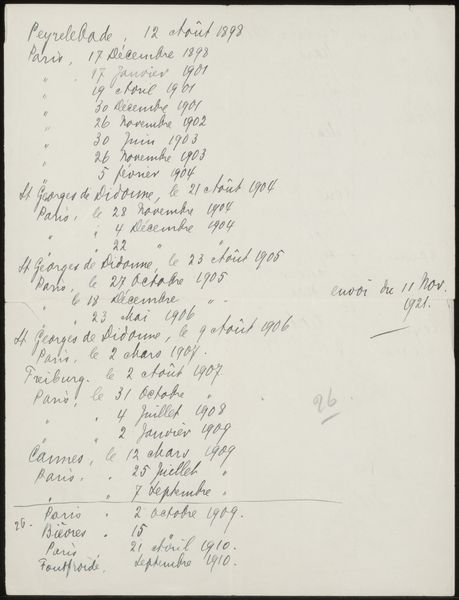 Peyrelebade, 12 Août 1898
Paris, 17 Décembre 1898
" 17 Janvier 1901
" 19 Avril 1901
" 30 Décembre 1901
" 26 Novembre 1902
" 30 Juin 1903
" 26 Novembre 1903
" 5 février 1904
St Georges de Didonne, le 21 Août 1904
Paris, le 28 Novembre 1904
" " 4 Décembre 1904
" " 22 " "
St Georges de Didonne, le 23 Août 1905
Paris, le 27 Octobre 1905
" le 18 Décembre " "
envoi du 11 Nov.
1921.
" " 23 Mai 1906
St Georges de Didonne, le 9 Août 1906
Paris, le 2 Mars 1907.
Freiburg. le 2 Août 1907.
Paris, le 31 Octobre "
26.
" " 4 Juillet 1908
" " 2 Janvier 1909
Cannes, le 12 Mars 1909
Paris. " 25 Juillet "
" " 7 Septembre "
Paris " 2 Octobre 1909.
26. Bièvres " 15 "
Paris 21 Avril 1910.
Fontfroide. Septembre 1910.